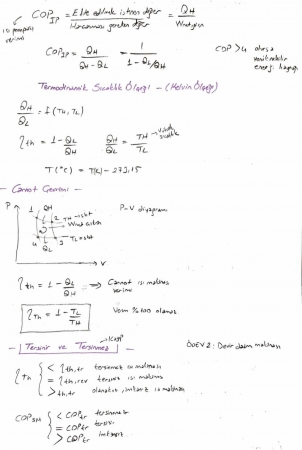 COP_IP = Elde edilmek istenen değer / Harcanması gereken değer = QH / Wnet,giren
ısı pompası verimi
COP_IP = QH / (QH - QL) = 1 / (1 - QL/QH)
COP > 4 olursa
yenilenebilir
enerji kaynağı
Termodinamik Sıcaklık Ölçeği - (Kelvin Ölçeği)
QH / QL = f (TH, TL)
ηth = 1 - QL / QH QH / QL = TH / TL → sıcaklık
T (°C) = T(K) - 273,15
- Carnot Çevrimi -
P QH P-V diyagramı
1 2 TH = sbt
Wnet,çıkan
4 3 TL = sbt
QL V
ηth = 1 - QL / QH ⇒ Carnot ısı makinası verimi
ηTh = 1 - TL / TH Verim %100 olamaz.
- Tersinir ve Tersinmez
ÖDEV 2: Devir daim makinası
ηth { < ηth,tr tersinmez ısı makinası
= ηth,rev tersinir ısı makinası
> ηth,tr olanaksız, imkansız ısı makinası
COP_SM { < COPtr tersinmez
= COPtr tersinir
> COPtr imkansız